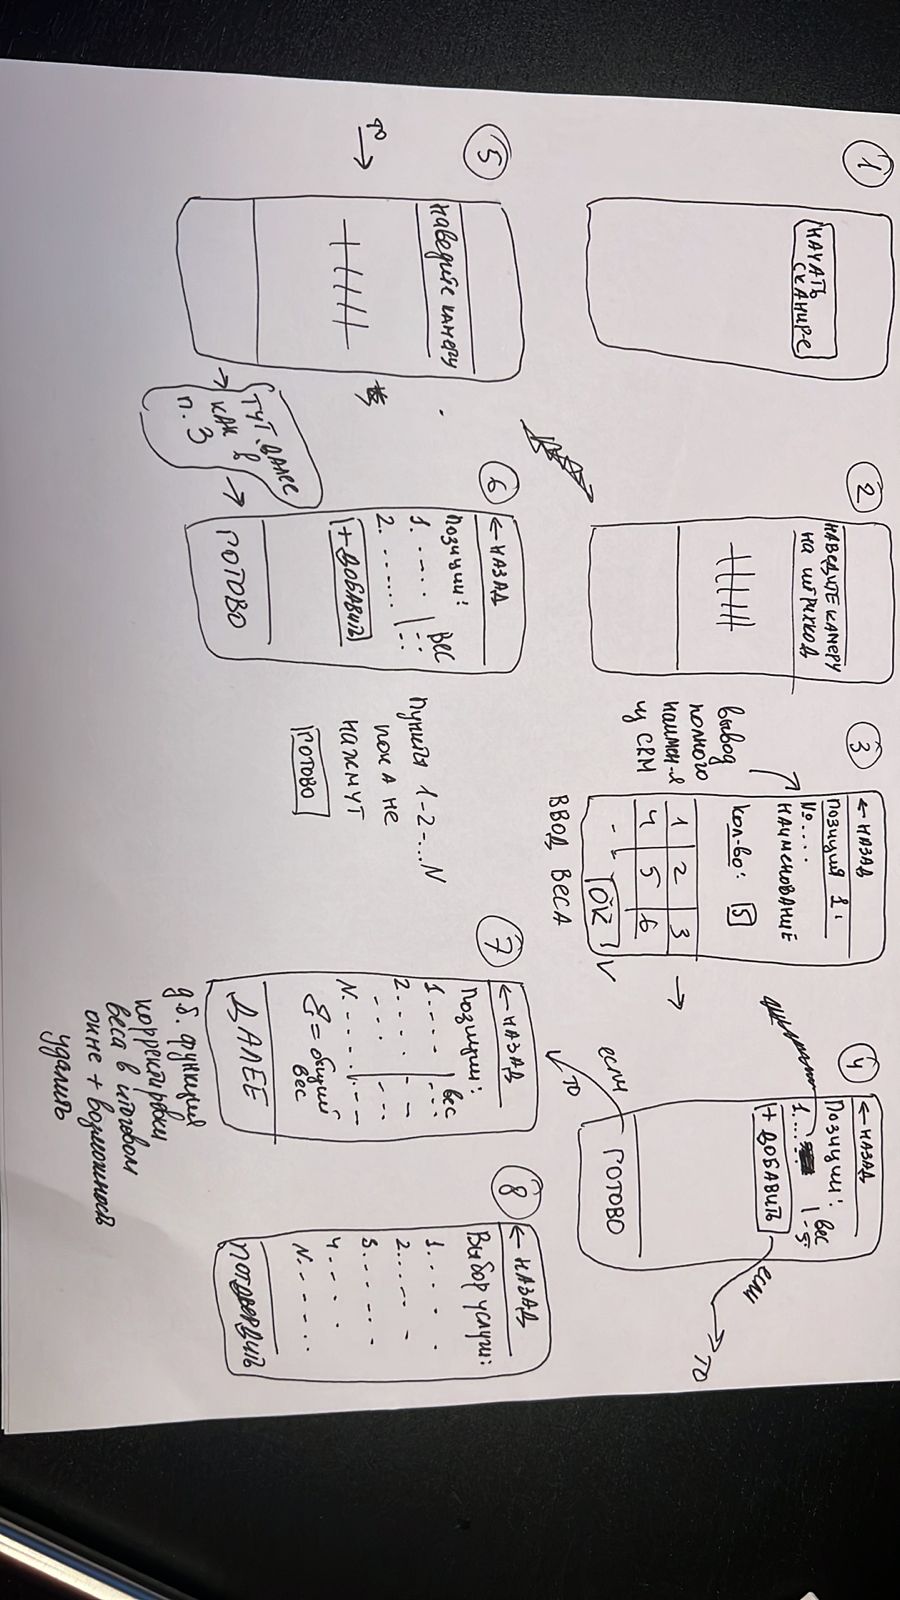 1
НАЧАТЬ
СКАНИР-Е
2
НАВЕДИТЕ КАМЕРУ
НА ШТРИХКОД
3
← НАЗАД
ПОЗИЦИЯ 1:
№....
НАИМЕНОВАНИЕ
КОЛ-ВО: 5
1 2 3
4 5 6
OK
ВВОД ВЕСА
ВЫВОД
ПОЛНОГО
НАИМЕН-Я
ИЗ CRM
4
← НАЗАД
Позиции: Вес
1..... 5
+ ДОБАВИТЬ
ГОТОВО
если
ТО
если
ТО
ТО
5
НАВЕДИТЕ КАМЕРУ
ТУТ ДАЛЕЕ
КАК В
П. 3
6
← НАЗАД
Позиции: Вес
1. ....
2. .....
+ ДОБАВИТЬ
ГОТОВО
Пункты 1-2-...N
ПОКА НЕ
НАЖМУТ
ГОТОВО
7
← НАЗАД
Позиции: Вес
1....
2....
N.....
= общий
вес
ДАЛЕЕ
д.б. функция
корректировки
веса в итоговом
окне + возможность
удалить
8
← НАЗАД
Выбор услуги:
1....
2.....
3.....
4....
N.....
ПОДТВЕРДИТЬ